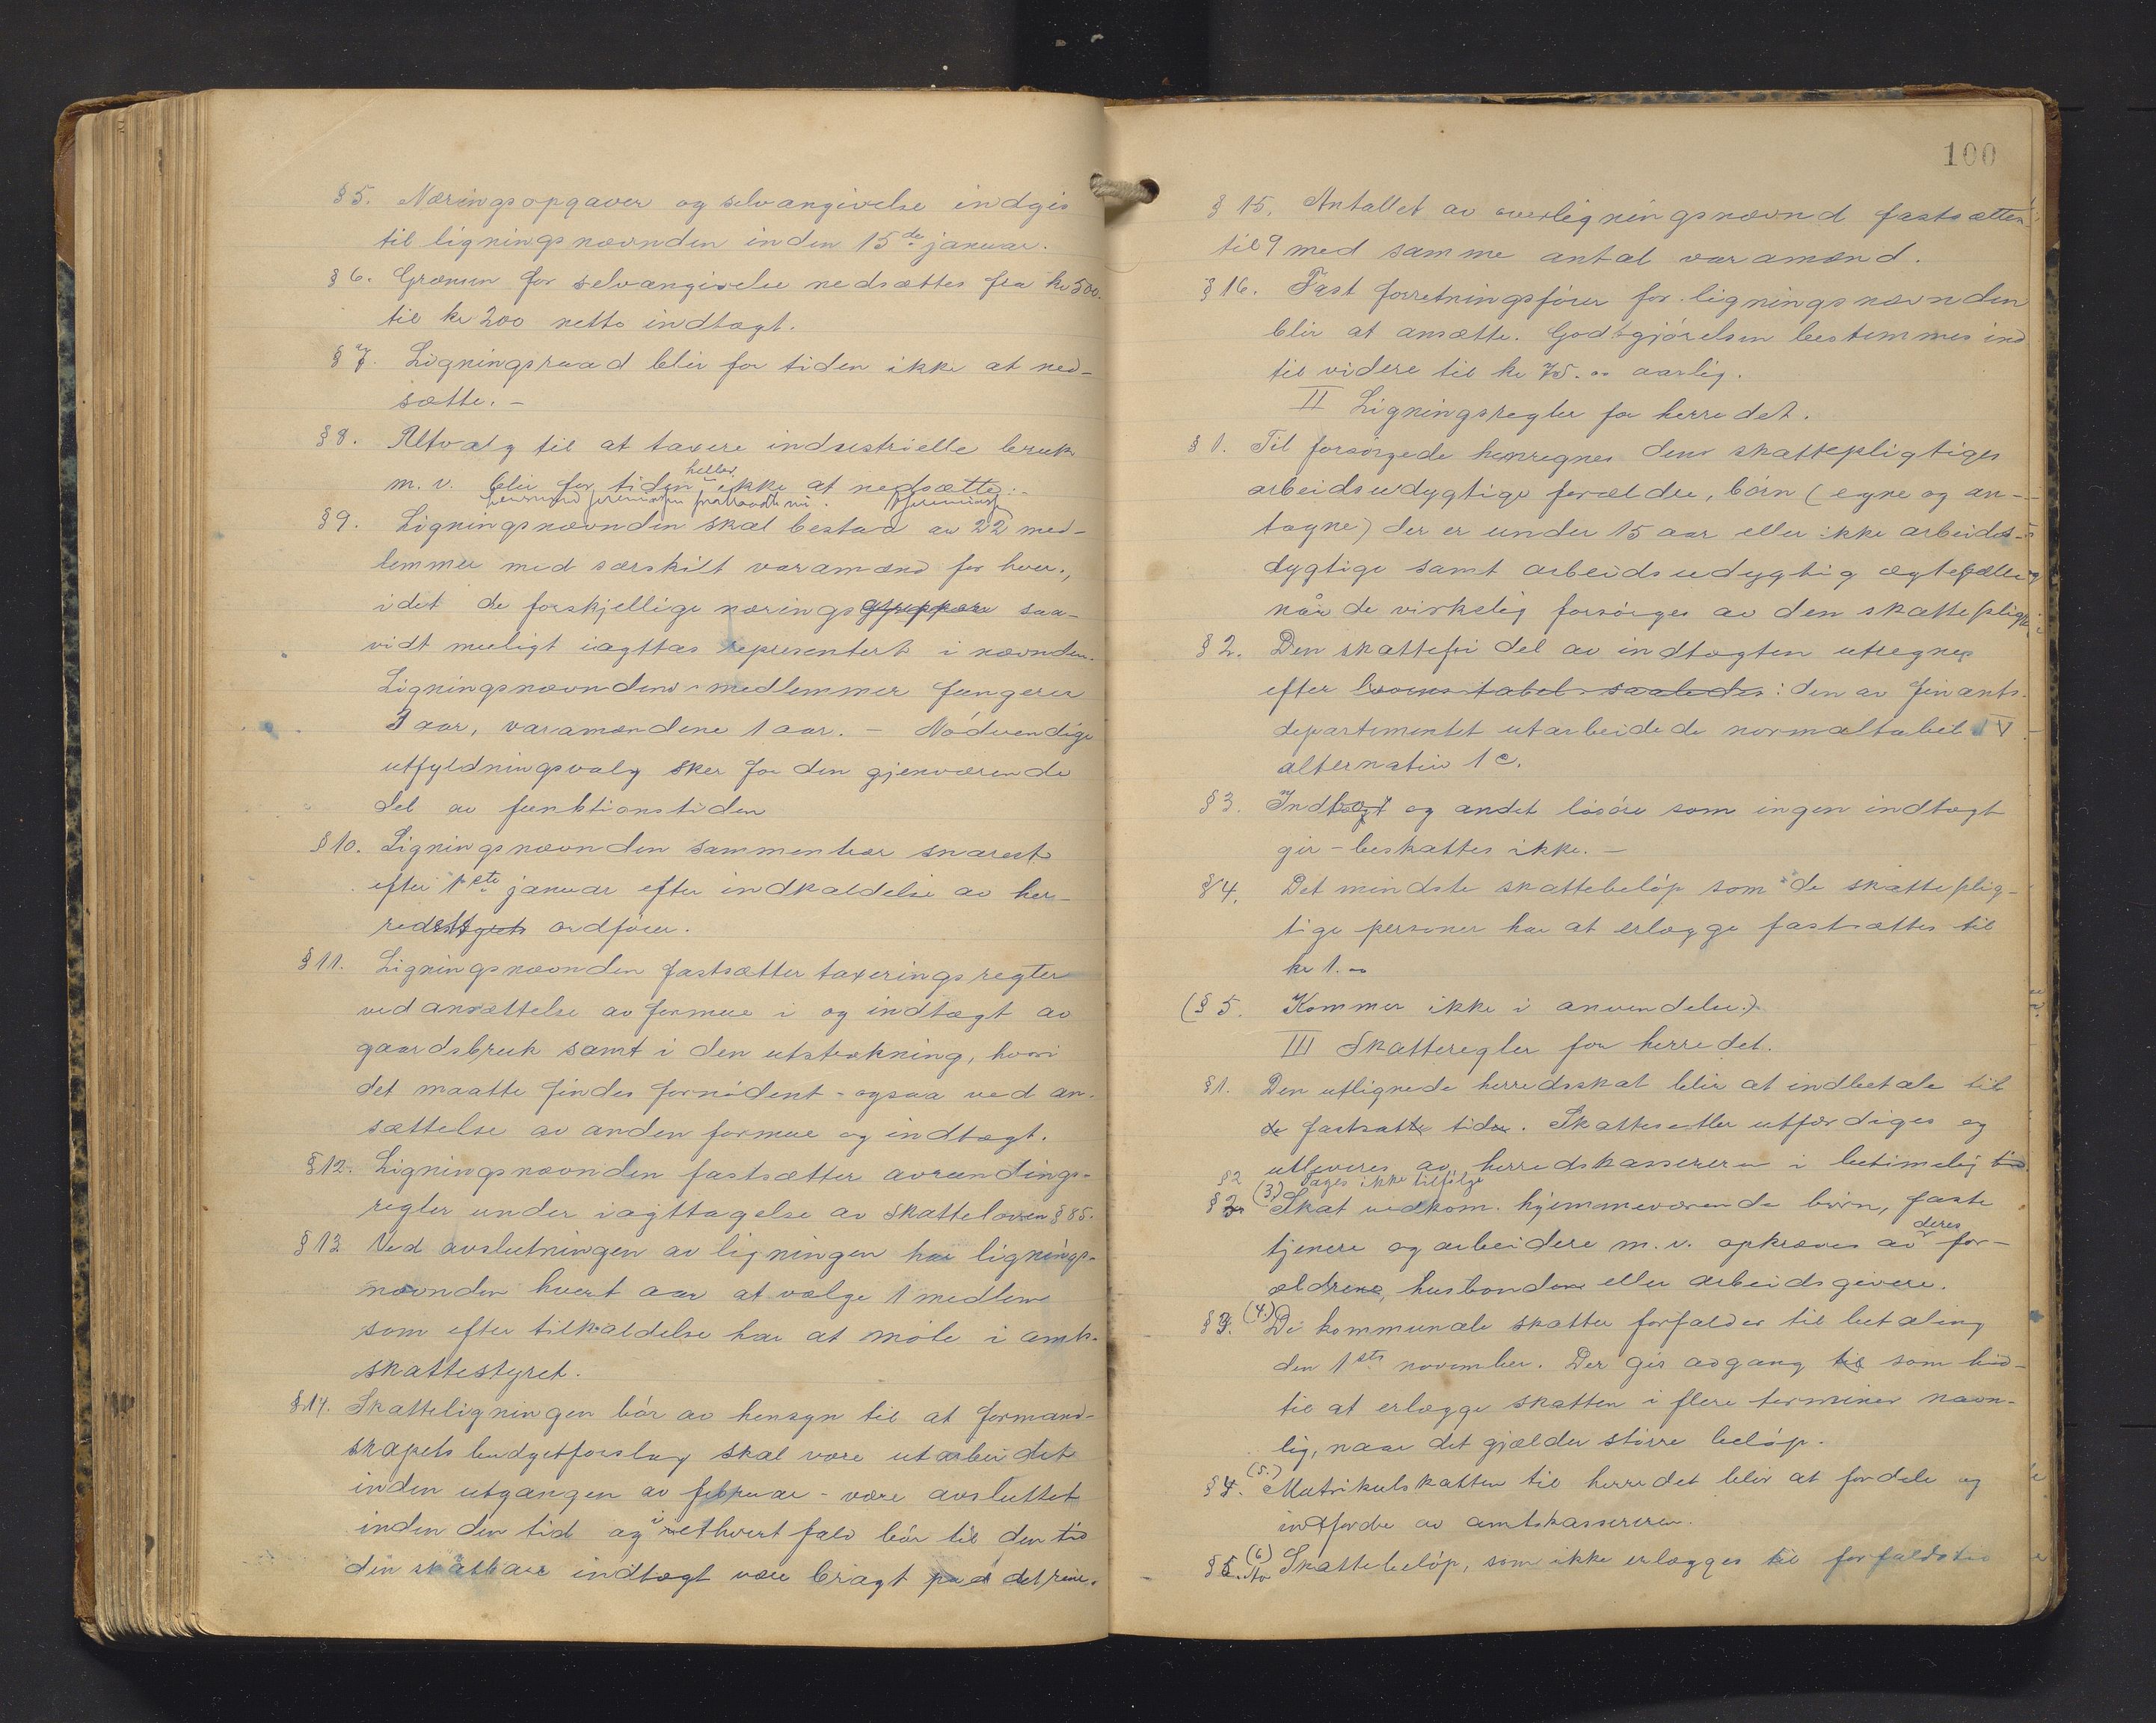 § 5. Næringsopgaver og selvangivelse indgis
til ligningsnævnden inden 15de januar.
§ 6. Grænsen for selvangivelse nedsættes fra kr 500.
til kr 200 netto indtægt.
§ 7. Ligningsraad blir for tiden ikke at ned-
sætte. -
§ 8. Utvalg til at taxere industrielle bruk
heller
m. v. blir for tiden ikke at nedsætte. -
§ 9. Ligningsnævnden skal bestaa av 22 med-
lemmer med særskilt varamænd for hver.,
idet de forskjellige nærings saa-
vidt muligt iagttas representert i nævnden.
Ligningsnævndens medlemmer fungerer
3 aar, varamændene 1 aar. - Nödvendige
utfyldningsvalg sker for den gjenværende
del av funktionstiden
§ 10. Ligningsnævnden sammentrær snarest
efter 1ste januar efter indkaldelse av her-
redsstyrets ordförer.
§ 11. Ligningsnævnden fastsætter taxeringsregler
ved ansættelse av formue i og indtægt av
gaardsbruk samt i den utstrækning, hvori
det maatte findes fornödent - ogsaa ved an-
sættelse av anden formue og indtægt.
§ 12. Ligningsnævnden fastsætter avrundings-
regler under iagttagelse av skatteloven § 85.
§ 13 Ved avslutningen av ligningen har lignings-
nævnden hvert aar at vælge 1 medlem
som efter tilkaldelse har at möte i amts-
skattestyret.
§ 14. Skatteligningen bör av hensyn til at formand-
skapets budgetforslag skal være utarbeidet
inden utgangen av februar - være avsluttet
inden den tid og i ethvert fald bör til den tid
den skatbare indtægt være bragt paa det rene.
100
§ 15. Antallet av overligningsnævnd fastsættes
til 9 med samme antal varamænd.
§ 16. Fast forretningsförer for ligningsnævnden
blir at ansætte. Godtgjörelsen bestemmes ind
til videre til kr 75.00 aarlig.
II Ligningsregler for herredet.
§ 1. Til forsörgede henregnes den skattepligtiges
arbeidsudygtige forældre, börn (egne og an-
tagne) der er under 15 aar eller ikke arbeids-
dygtige samt arbeidsudygtig ægtefælle
når de virkelig forsörges av den skattepligtige
§ 2. Den skattefri del av indtægten utregnes
efter lovens tabel saaledes: den av finants-
departementet utarbeidede normaltabel IV
alternativ 1 c.
§ 3. Indbo og andet lösöre som ingen indtægt
gir - beskattes ikke. -
§ 4. Det mindste skattebelöp som de skatteplig-
tige personer har at erlægge fastsættes til
kr 1.00
(§ 5. Kommer ikke i anvendelse.)
III Skatteregler for herredet.
§ 1. Den utlignede herredsskat blir at indbetale til
de fastsatte tider. Skattesedler utfærdiges og
utleveres av herredskassereren i betimelig tid
§ 2 Tages ikke tilfölge
§ 2 (3) Skat vedkom. hjemmeværende börn, faste
deres
tjenere og arbeidere m. v. opkræves av for-
ældrene, husbondene eller arbeidsgivere.
§ 3. (4.) De kommunale skatter forfalder til betaling
den 1ste november. Der gis adgang til som hid-
til at erlægge skatten i flere terminer navn-
lig, naar det gjælder större belöp.
§ 4. (5.) Matrikulskatten til herredet blir at fordele og
indfordre av amtskassereren.
§ 5. (6) Skattebelöp, som ikke erlægges til forfaldstid